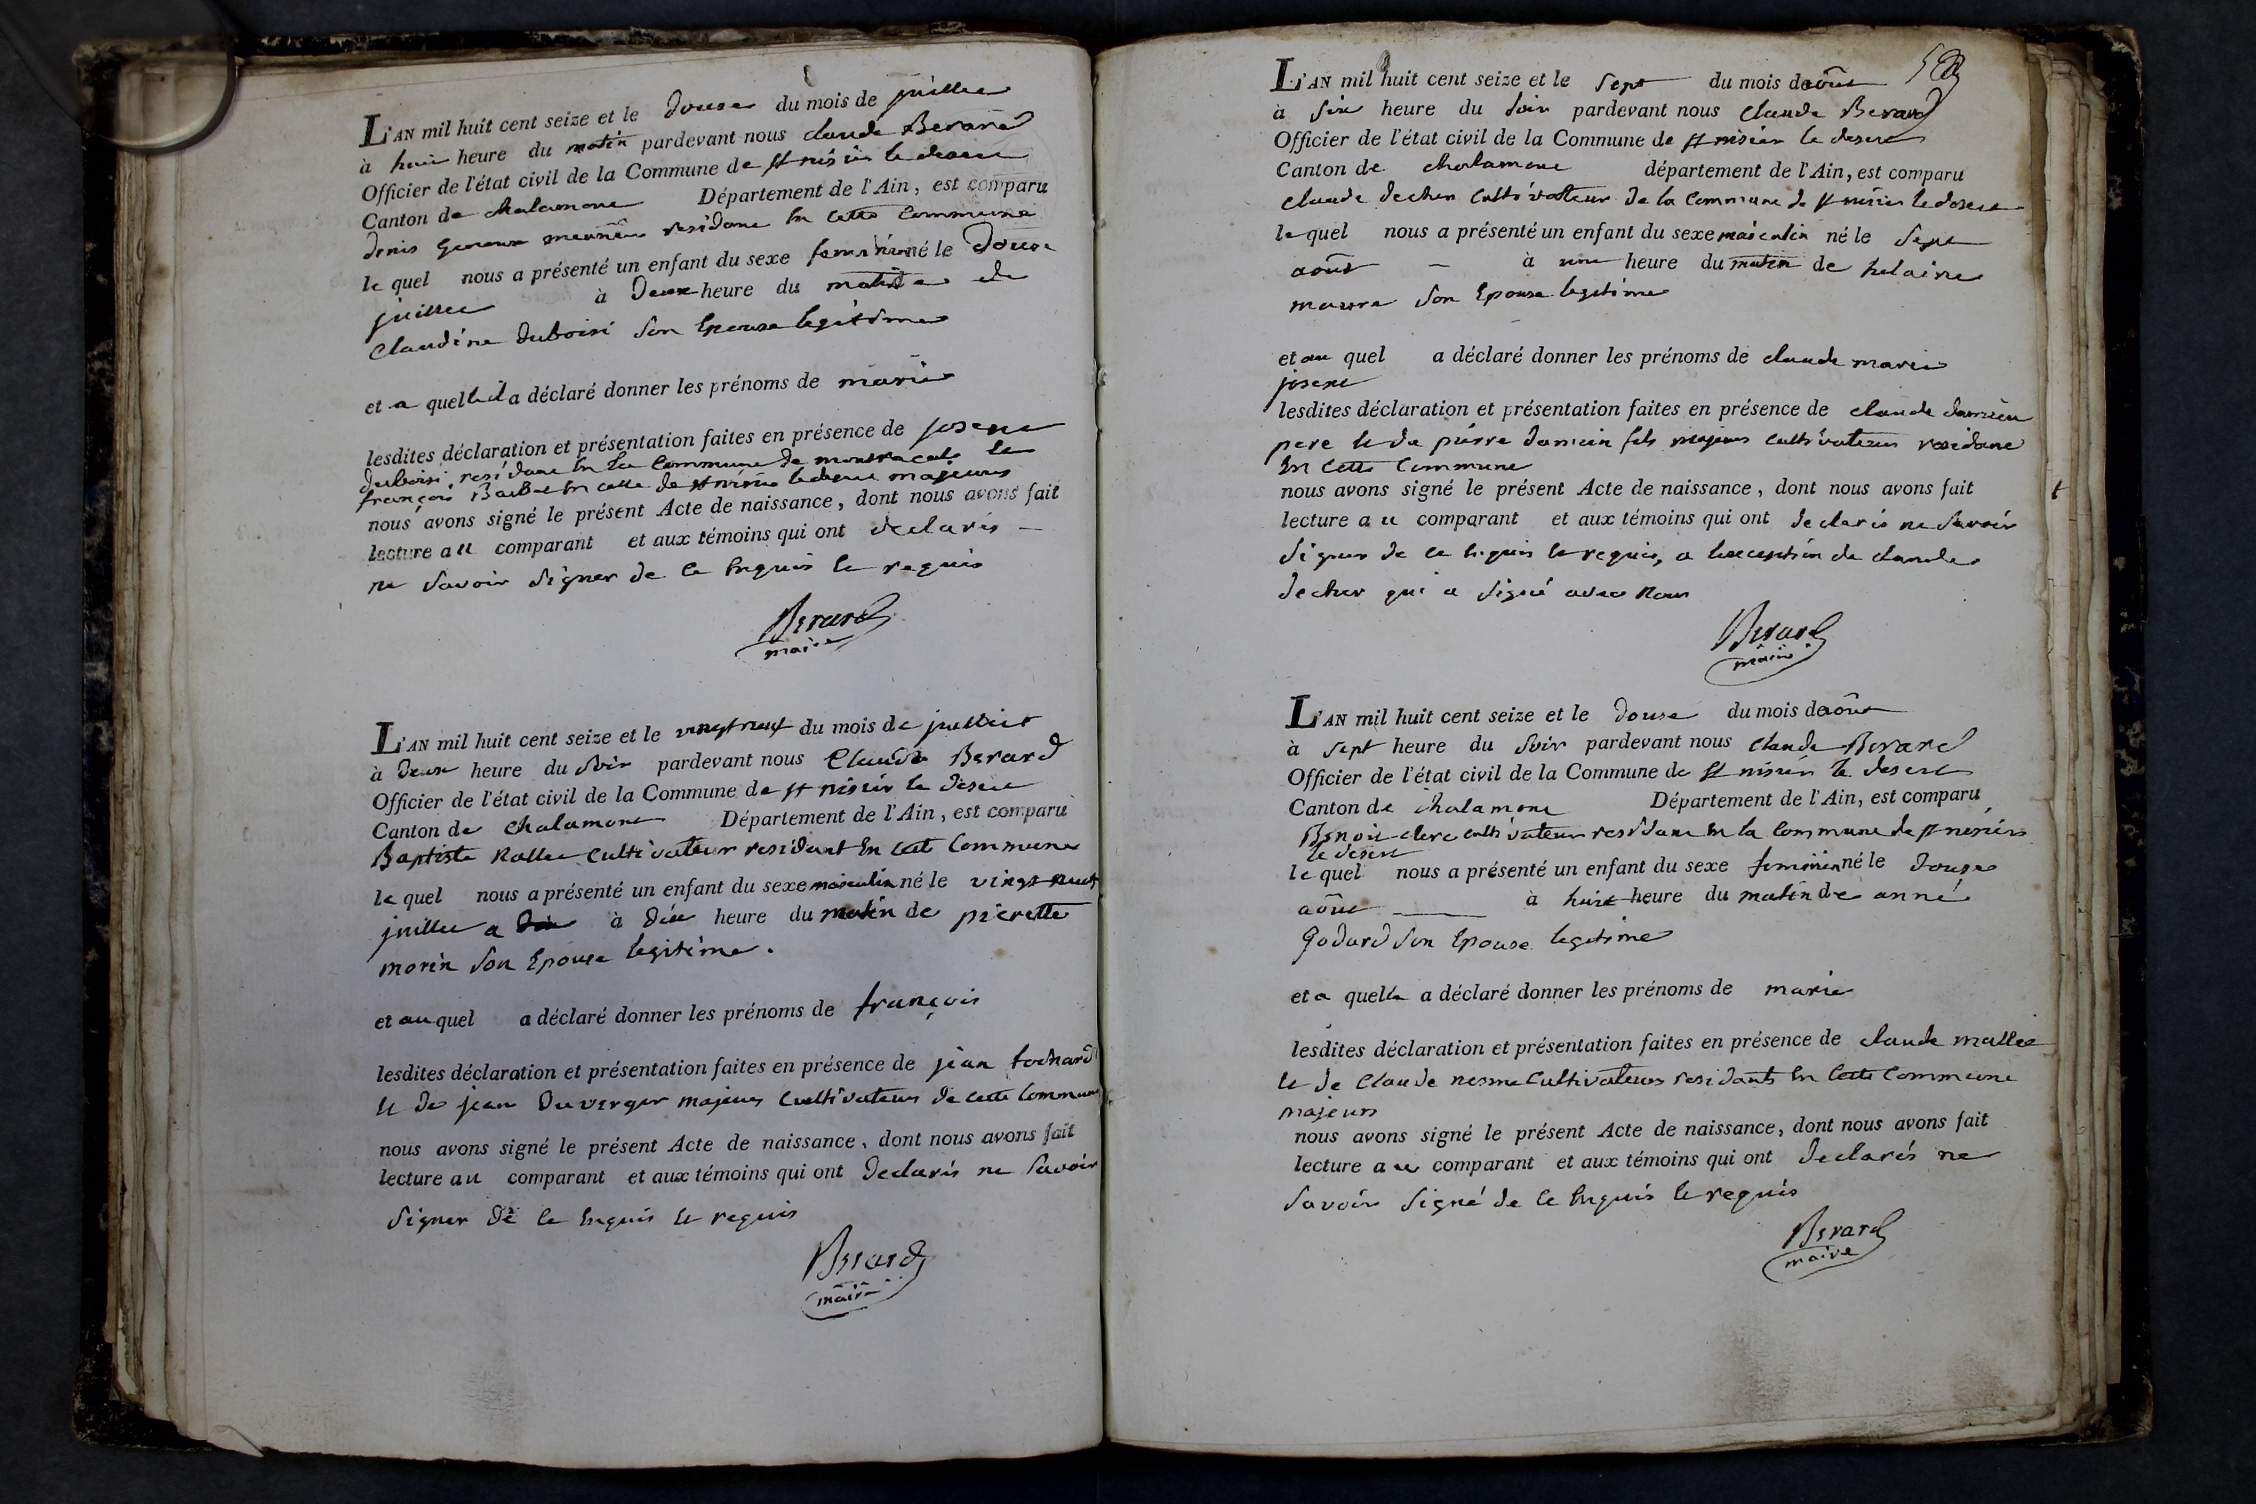 L'AN mil huit cent seize et le douse du mois de juillet
à huit heure du matin pardevant nous claude Berard
Officier de l'état civil de la Commune de st nisier le desert
Canton de chalamont Département de l'Ain, est comparu
denis meunier residant en cette commune
le quel nous a présenté un enfant du sexe feminin né le douse
juillet à deux heure du matin de
claudine duboisi son epouse legitime
et a quelle il a déclaré donner les prénoms de marie
lesdites déclaration et présentation faites en présence de josept
duboisi, residant en la commune de montracol et
françois Barbet en celle de st nisier le desert majeurs
nous avons signé le présent Acte de naissance, dont nous avons fait
lecture au comparant et aux témoins qui ont declarés
ne savoir signer de ce enquis et requis
Berard
maire
L'AN mil huit cent seize et le vingt neuf du mois de juillet
à deux heure du soir pardevant nous Claude Berard
Officier de l'état civil de la Commune de st nisier le desert
Canton de chalamont Département de l'Ain, est comparu
Baptiste Rollet cultivateur residant en cete commune
le quel nous a présenté un enfant du sexe masculin né le vingt neuf
juillet a à dix heure du matin de pierette
morin son epouse legitime.
et au quel a déclaré donner les prénoms de françois
lesdites déclaration et présentation faites en présence de jean tochard
et de jean duverger majeurs cultivateurs de cette commune
nous avons signé le présent Acte de naissance, dont nous avons fait
lecture au comparant et aux témoins qui ont declarés ne savoir
signer de ce enquis et requis
Berard
maire
L'AN mil huit cent seize et le sept du mois d'août
à six heure du soir pardevant nous claude Berard
Officier de l'état civil de la Commune de st nisier le desert
Canton de chalamont département de l'Ain, est comparu
claude decher cultivateur de la commune de st nisier le desert
le quel nous a présenté un enfant du sexe masculin né le sept
août à une heure du matin de helaine
maure son epouse legitime
et au quel a déclaré donner les prénoms de claude marie
josept
lesdites déclaration et présentation faites en présence de claude damien
pere et de pierre damien fils majeurs cultivateurs residant
en cette commune
nous avons signé le présent Acte de naissance, dont nous avons fait
lecture au comparant et aux témoins qui ont declarés ne savoir
signer de ce enquis et requis, a l'exception de claude
decher qui a signé avec nous
Berard
maire
L'AN mil huit cent seize et le douse du mois d'août
à sept heure du soir pardevant nous claude Berard
Officier de l'état civil de la Commune de st nisier le desert
Canton de chalamont Département de l'Ain, est comparu
Benoit clerc cultivateur residant en la commune de st nisier
le desert
le quel nous a présenté un enfant du sexe feminin né le douse
août à huit heure du matin de anne
godard son epouse legitime
et a quelle a déclaré donner les prénoms de marie
lesdites déclaration et présentation faites en présence de claude mallet
et de claude nesme cultivateurs residants en cette commune
majeurs
nous avons signé le présent Acte de naissance, dont nous avons fait
lecture au comparant et aux témoins qui ont declarés ne
savoir signé de ce enquis et requis
Berard
maire